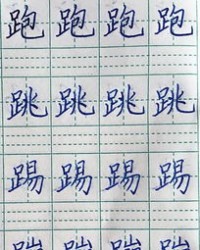 跑跑跑跑
跳跳跳跳
踢踢踢踢